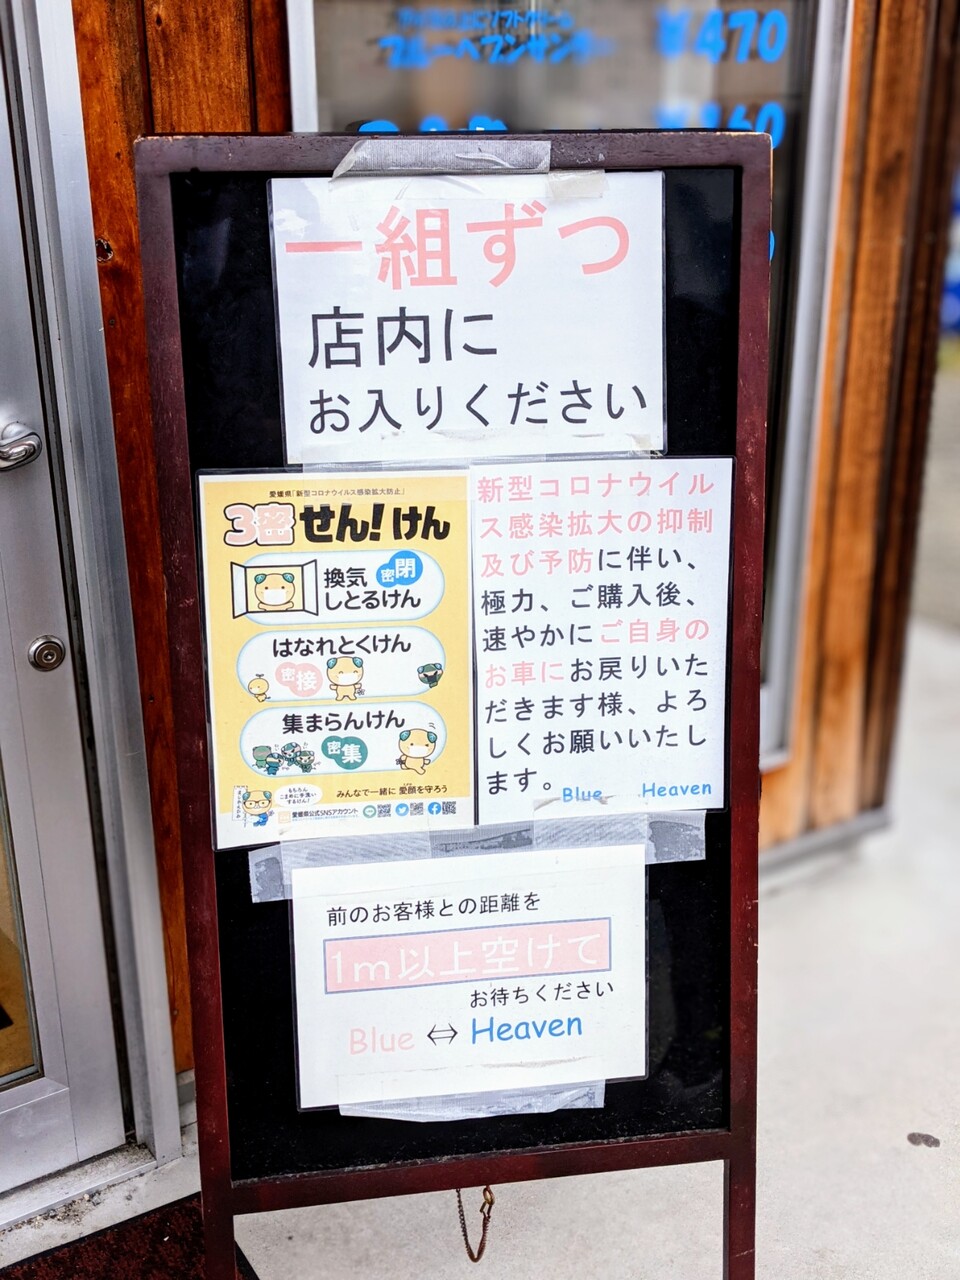 ¥470
一組ずつ
店内に
お入りください
愛媛県「新型コロナウイルス感染拡大防止」
3密せん!けん
換気
しとるけん
密閉
はなれとくけん
密接
集まらんけん
密集
みんなで一緒に 愛顔を守ろう
愛媛県公式SNSアカウント
新型コロナウイル
ス感染拡大の抑制
及び予防に伴い、
極力、ご購入後、
速やかにご自身の
お車にお戻りいた
だきます様、よろ
しくお願いいたし
ます。
Blue Heaven
前のお客様との距離を
1m以上空けて
お待ちください
Blue ⇔ Heaven